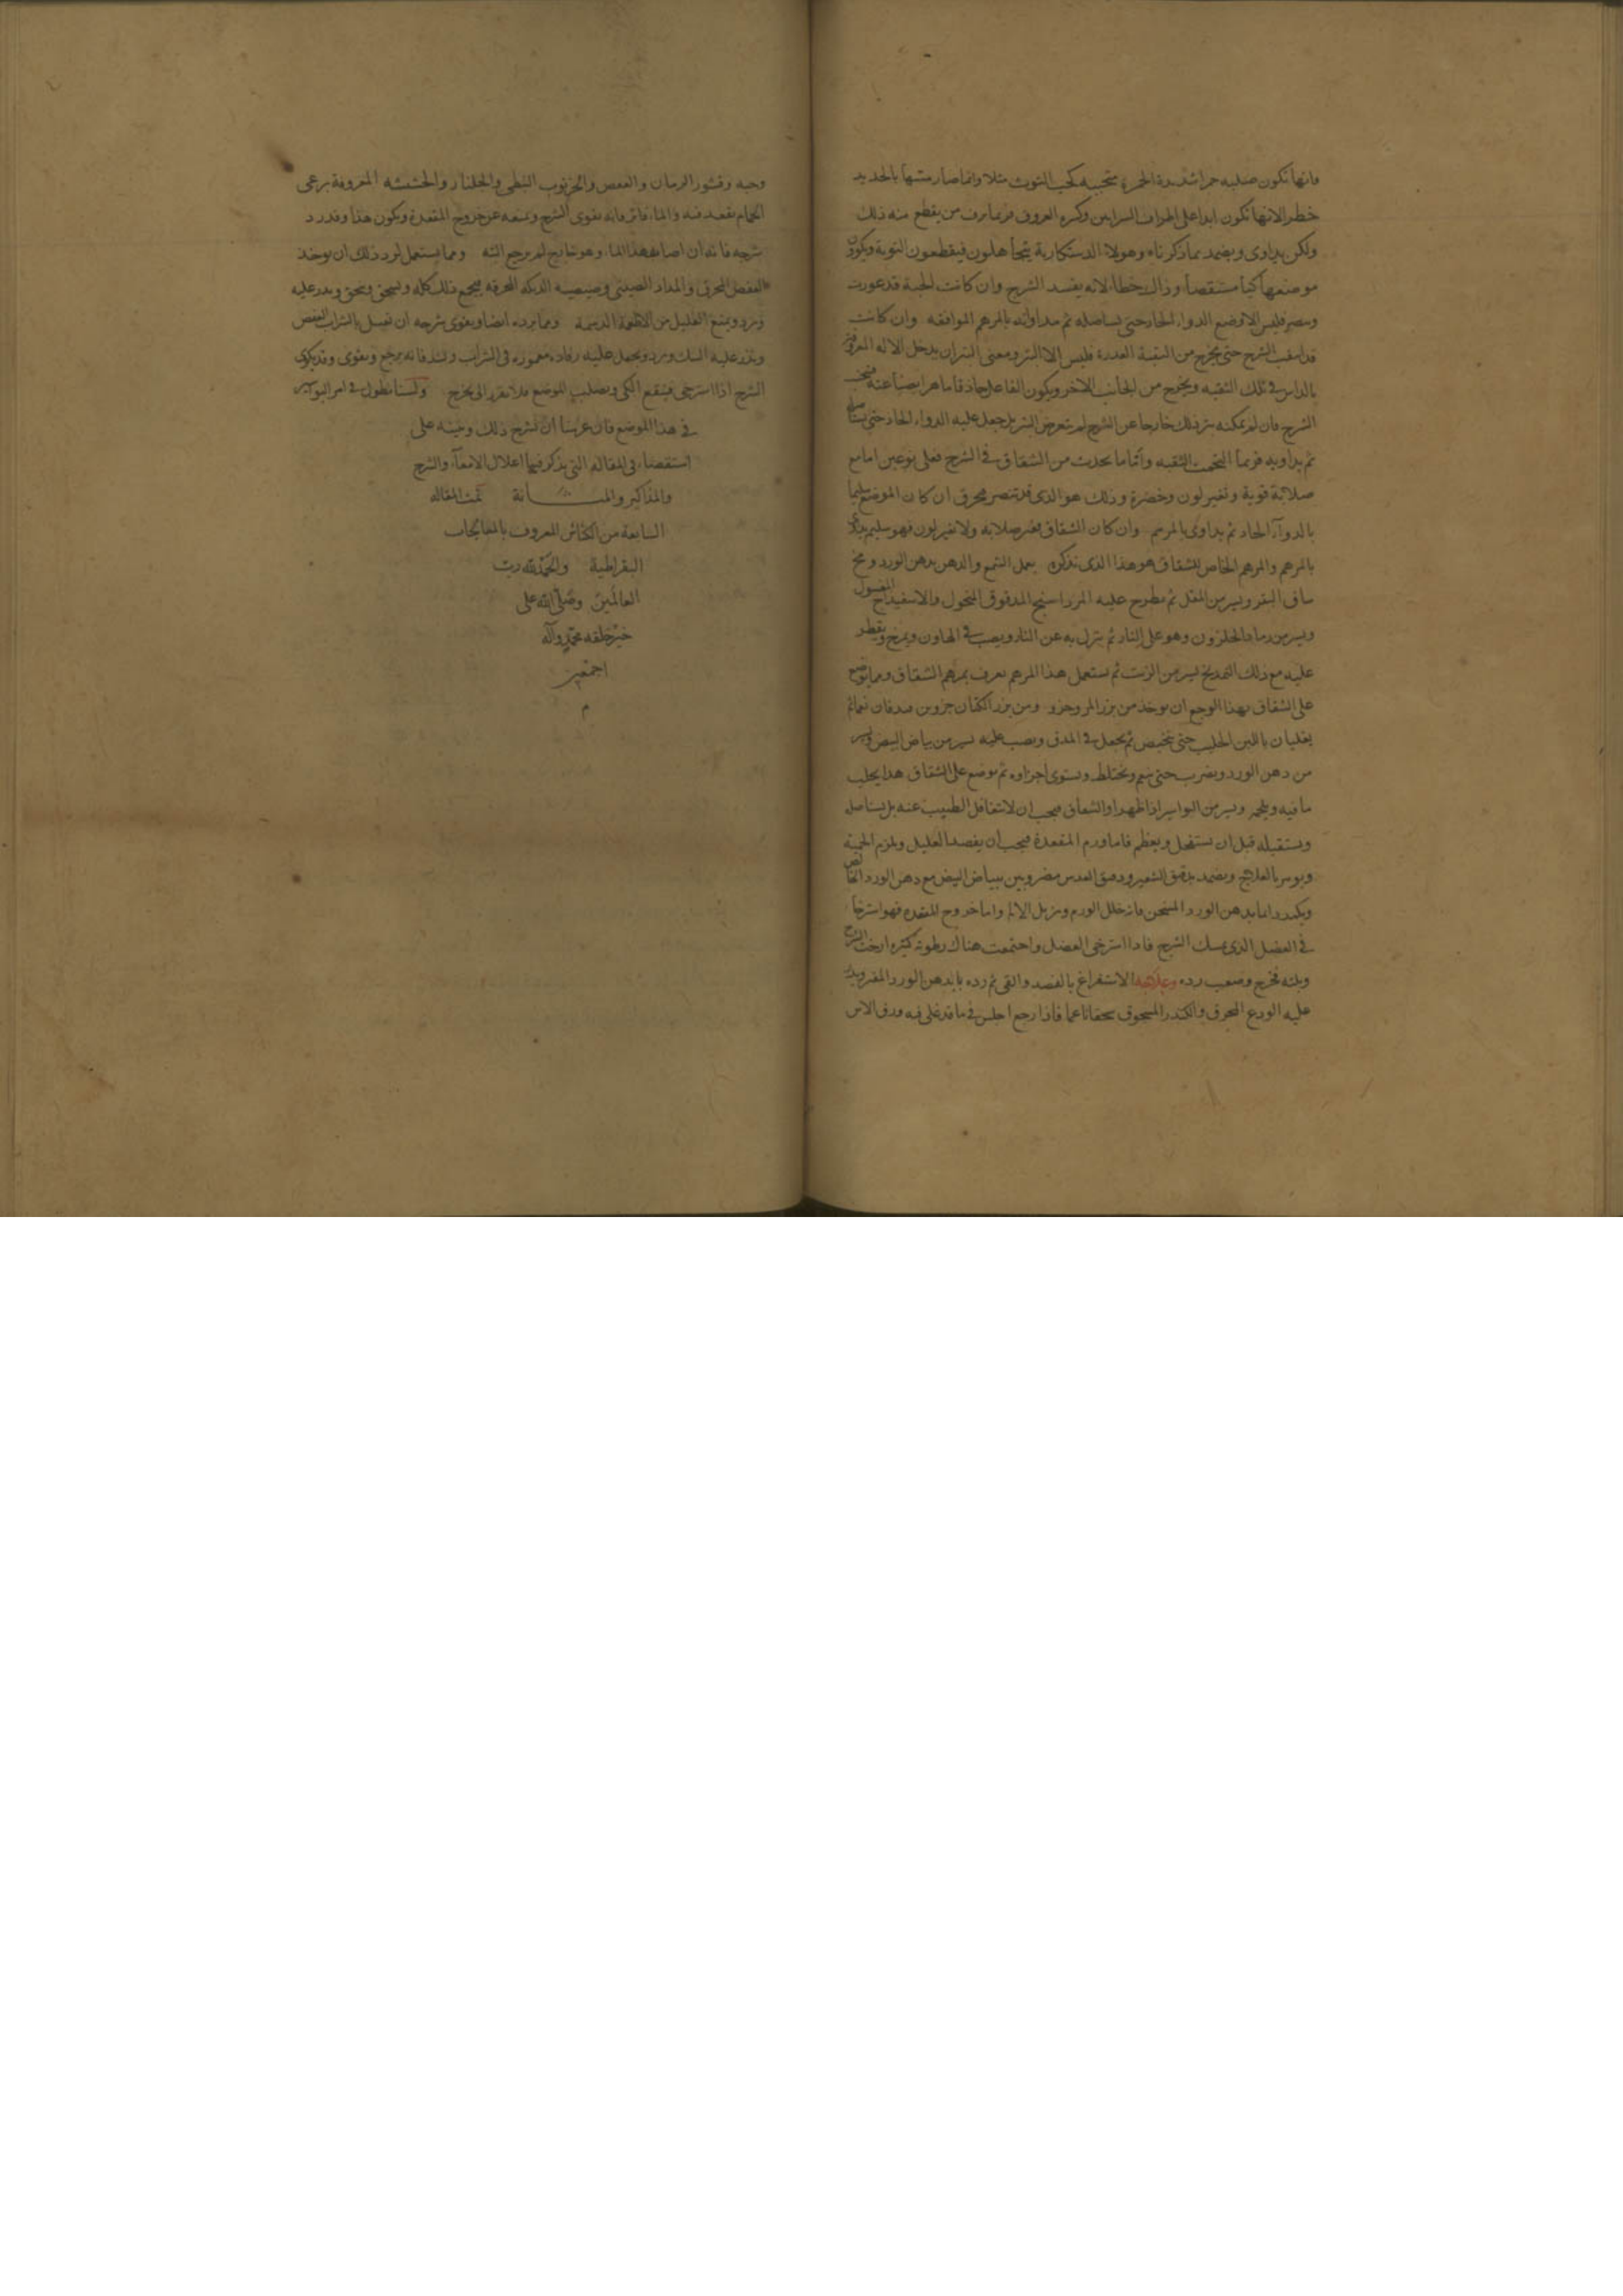 فانها تكون صلبه حمرا شديدة الحمرة متحببه كحب التوث مثلا وانما صار مسها بالحديد
خطر الانها تكون ابدا على اطراف الشرايين وكبره العروق فربما نزف من يقطع منه ذلك
ولكن يداوى ويضمد بما ذكرناه وهولاء الدستكارية يتجاهلون فيقطعون التوبة ويكوون
موضعها كيا مستقصا وذلك خطا لانه يفسد الشرج وان كانت الحبة قد غورت
فليس الا وضع الدواء الحاد حتى يستاصله ثم مداواته بالمرهم الموافقه وان كانت
قد الشرج حتى يخرج من الثقبة العدرة فليس الا البتر ومعنى البتر ان يدخل الاله المعروفه
في تلك الثقبه ويخرج من الجانب الاخر ويكون الفاعل حاذقا ماهرا
الشرج فان لم يمكنه بتر ذلك خارجا عن الشرج لم يتعرض للبتر بل جعل عليه الدواء الحاد حتى
ثم يداويه فربما التحمت الثقبه واما ما يحدث من الشقاق في الشرج فعلى نوعين اما مع
صلابة قوية وتغير لون وخضرة وذلك هو الذى محرق ان كان الموضع سليما
بالدواء الحاد ثم يداوى بالمرهم وان كان الشقاق بغير صلابه ولا تغير لون فهو سليم يداوى
بالمرهم والمرهم الخاص للشقاق هو هذا الذى نذكره يعمل الشمع والدهن بدهن الورد ومخ
ساق البقر ويسير من المقل ثم يطرح عليه المرداسنج المدقوق المنخول والاسفيداج المغسول
ويسير من رماد الحلزون وهو على النار ثم ينزل به عن النار ويصب في الهاون ويمرخ ويقطر
عليه مع ذلك التمريخ يسير من الزيت ثم يستعمل هذا المرهم يعرف بمرهم الشقاق ومما يوضع
على الشقاق بهذا الوجع ان يوخذ من بزر المر وجزو ومن بزر الكتان جزوين يدقان نعما ثم
يغليان باللبن الحليب حتى ثم يجعل في المدق ويصب عليه يسير من بياض البيض ويسير
من دهن الورد ويضرب حتى ويختلط ويستوى اجزاوه ثم يوضع على الشقاق هذا يحلب
ما فيه ويلحمه ويسير من البواسير اذا ظهر او الشقاق فيجب ان لا يتغافل الطبيب عنه بل يستاصله
ويستقبله قبل ان يستفحل ويعظم فاما ورم المقعدة فيجب ان يفصد العليل ويلزم الحمية
ويضمد بدقيق الشعير ودقيق العدس مضروبين ببياض البيض مع دهن الورد الخالص
ويكمد دايما بدهن الورد المسخن فانه يحلل الورم ويزيل الالم واما خروج المقعده فهو استرخا
في العضل الذى يمسك الشرج فاذا استرخى العضل واجتمعت هناك رطوبه كثيره ارخت الشرج
وبلته فخرج وصعب رده وعلاجه الاستفراغ بالفصد والقى ثم رده بان يدهن الورد المفتر
عليه الودع المحرق والكندر المسحوق سحقا ناعما فاذا رجع اجلس في ما قد غلى فيه ورق الاس
وحبه وقشور الرمان والعفص والخرنوب النبطى والجلنار والحشيشه المعروفة برعى
الحمام يقعد فيه والماء فاتر فانه يقوى الشرج ويمنعه عن خروج المقعدة ويكون هذا وقد رد
شرجه فانه ان اصابه هذا الماء وهو خارج لم يرجع البته ومما يستعمل لرد ذلك ان يوخذ
العفص المحرق والمداد الصينى المحرقه يجمع ذلك كله ويسحق ويذر عليه
ويرد ويمنع العليل من الاطعمة الدسمة ومما يرده ايضا ويقوى شرجه ان يغسل بالشراب العفص
ويذر عليه السك ويرد ويجعل عليه رفاده مغموره في الشراب ويشد فانه يرجع ويقوى وقد يكوى
الشرج اذا استرخى فينفع الكى ويصلب الموضع فلا يقدر ان يخرج ولسنا نطول في امر البواسير
في هذا الموضع فان عزمنا ان نشرح ذلك ونبينه على
استقصاء في المقاله التى يذكر فيها اعلال الامعاء والشرج
والمذاكير والمثـــانة تمت المقاله
السابعة من الكناش المعروف بالمعالجات
البقراطية والحمد لله رب
العالمين وصلى الله على
خير خلقه محمد وآله
اجمعين
م